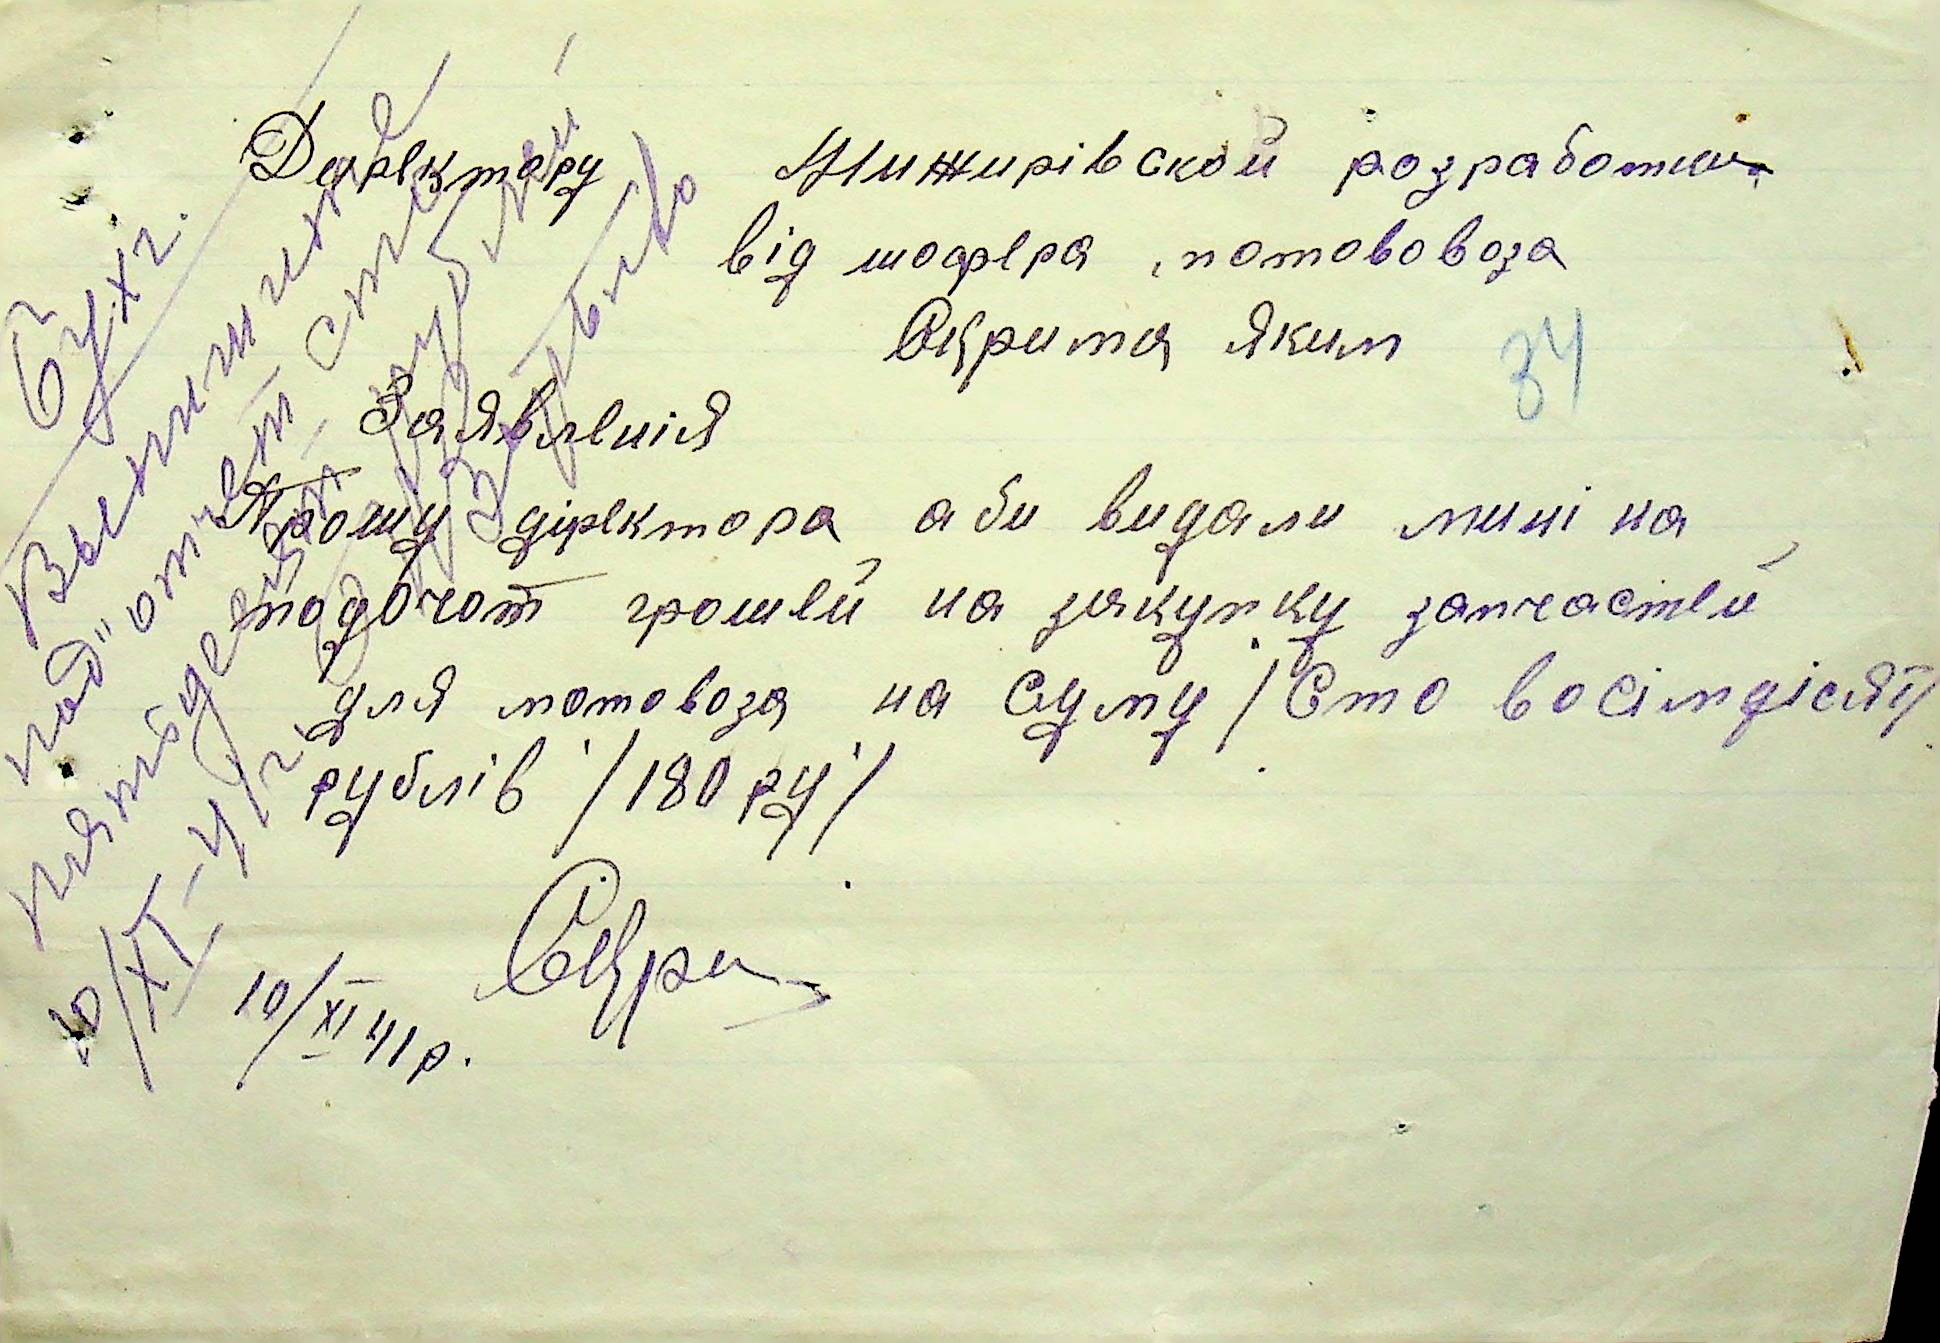 Директору Мижирівской розработки
від шофера мотовоза
Скрита Яким
34
Заявленія
Прошу діректора аби видали мині на
подочот грошей на закупку запчастей
для мотовоза на суму /Сто восімдісят/
рублів /180 ру/
Скри
10/XI 41 р.
Бух.
Выпишите
под "отчет" сто
пятьдесят рублей
10/XI-41 г.